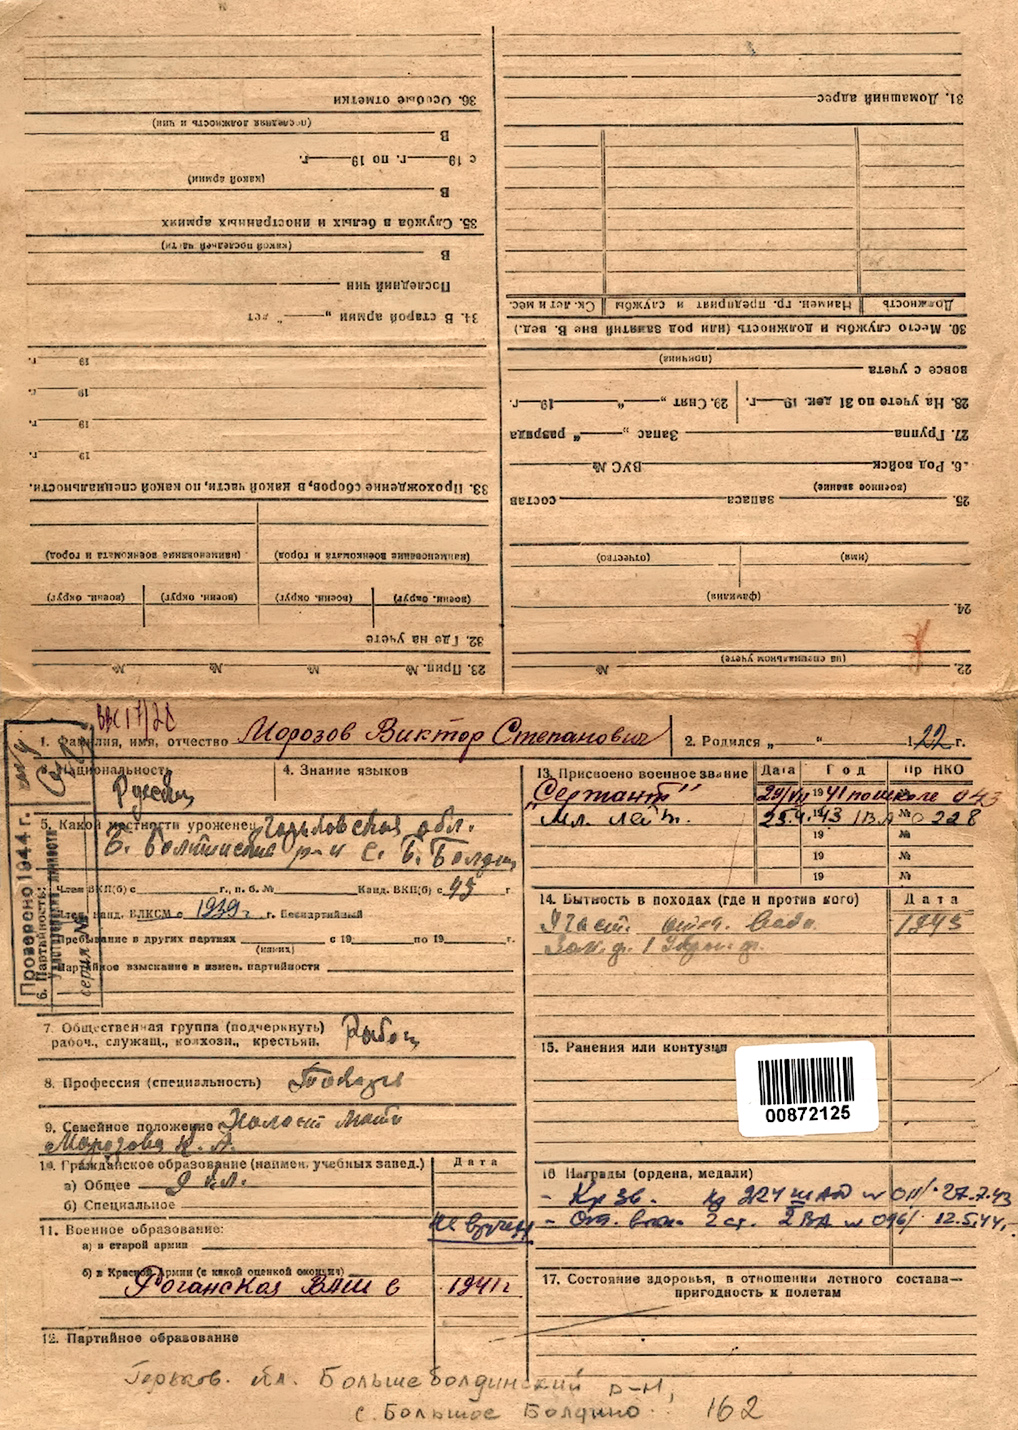 36. Особые отметки
(последняя должность и чин)
В
с 19 г. по 19 г.
(какой армии)
В
35. Служба в белых и иностранных армиях
(какой последней части)
В
Последний чин
34. В старой армии „ “ лет
19 г.
19 г.
19 г.
19 г.
33. Прохождение сборов, в какой части, по какой специальности.
(наименование военкомата и город) (наименование военкомата и город)
(воен. округ) (воен. округ) (воен. округ) (воен. округ)
32. Где на учете
23. Прип. № № № №
31. Домашний адрес
Должность Наимен. гр. предприят и службы Ск. лет и мес.
30. Место службы и должность (или род занятий вне В. вед.)
(причина)
вовсе с учета
28. На учете по 31 дек. 19 г. 29. Снят „ “ 19 г.
27. Группа Запас „ “ разряда
6. Род войск ВУС №
(военное звание)
25. запаса состав
(имя) (отчество)
(фамилия)
24.
(на специальном учете)
22. №
ВВС 17/20
1. Фамилия, имя, отчество Морозов Виктор Степанович
2. Родился „ “ 122 г.
3. Национальность Русский
4. Знание языков
5. Какой местности уроженец Горьковская обл.
Б. Болдинский р-н с. Б. Болдино
Проверено 1944 г.
Удостоверение личности
серия №
6. Партийность:
Член ВКП(б) с г., п. б. № Канд. ВКП(б) с 43 г
Член, канд. ВЛКСМ с 1939 г. г. Беспартийный
Пребывание в других партиях с 19 по 19 г.
(каких)
Партийное взыскание и измен. партийности
7. Общественная группа (подчеркнуть)
рабоч., служащ., колхозн., крестьян. Рабоч
8. Профессия (специальность) Токарь
9. Семейное положение Холост мать
Морозова К. А.
10. Гражданское образование (наимен. учебных завед.) Дата
а) Общее 9 кл.
б) Специальное
11. Военное образование:
а) в старой армии
б) в Красной Армии (с какой оценкой окончил)
Роганская ВАШ в 1941 г.
12. Партийное образование
13. Присвоено военное звание Дата Год Пр НКО
„Сержант“ 29/VII 1941 по школе 043
Мл. лейт. 25.4. 1943 1ВА № 0228
19 №
19 №
19 №
14. Бытность в походах (где и против кого) Дата
Участ. отеч. 1943
15. Ранения или контузии
00872125
16 Награды (ордена, медали)
- Кр Зв. 224 шАД № 011/ 27.7.43
не вручен - От. войн. 2 ст. 2 ВА № 096/ 12.5.44.
17. Состояние здоровья, в отношении летного состава—
пригодность к полетам
Горьков. обл. Большеболдинский р-н,
с. Большое Болдино. 162